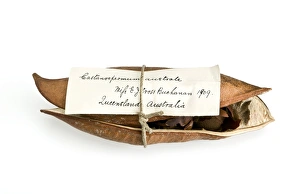 Castanospermum australe
Miss E. J. Ross Buchanan 1909.
Queensland, Australia